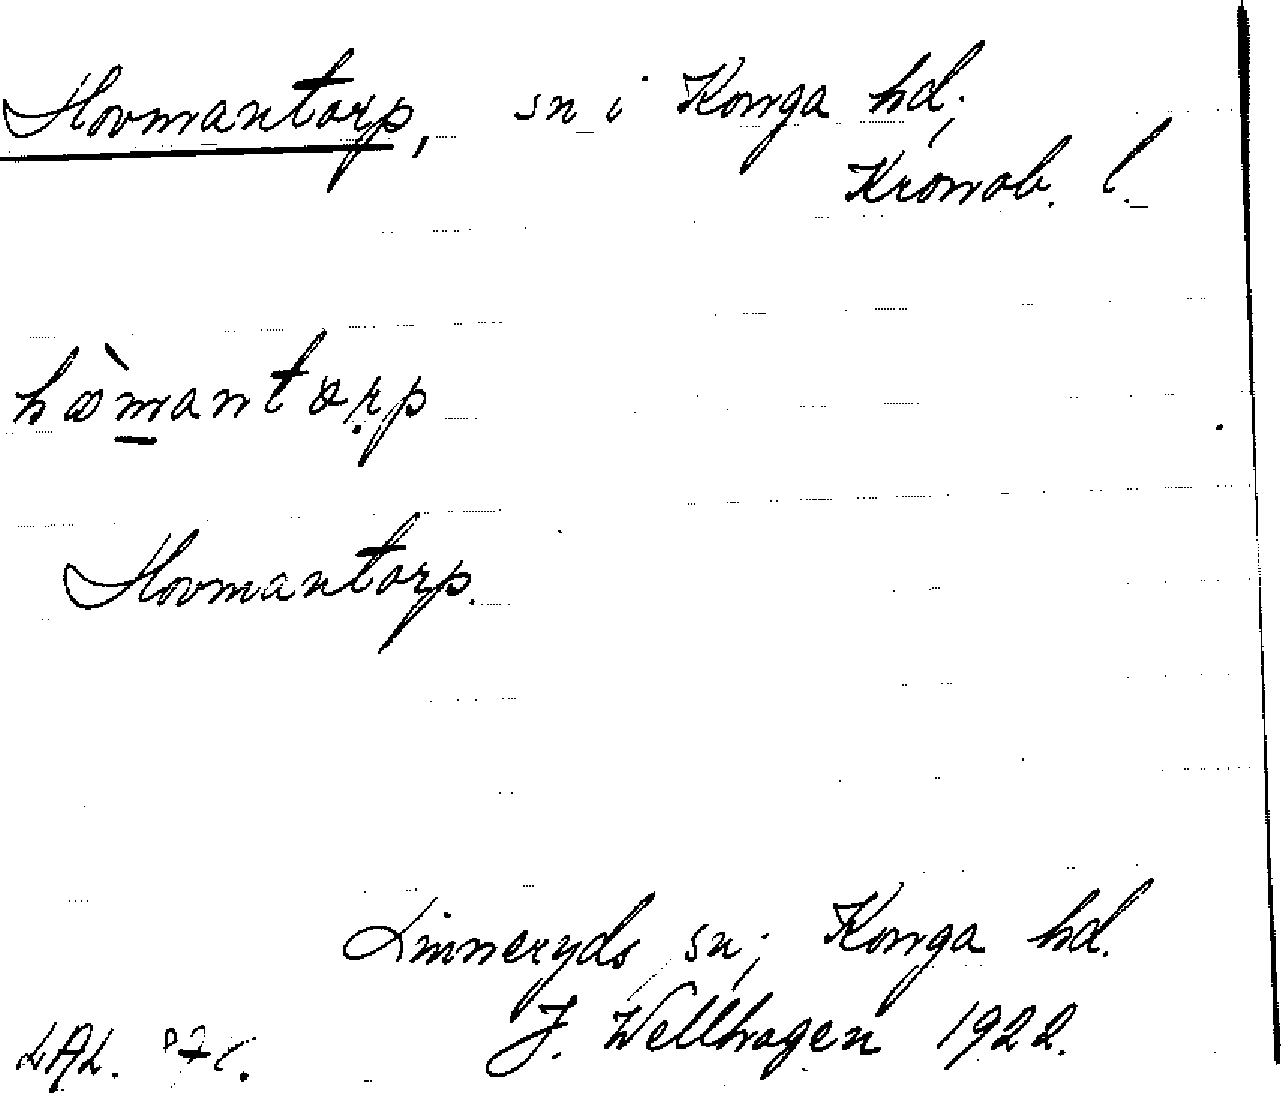 Hovmantorp, sn i Konga hd,
Kronob. l.
hòmantorp
Hovmantorp.
Linneryds sn, Konga hd.
J. Wellhagen 1922.
LAL.